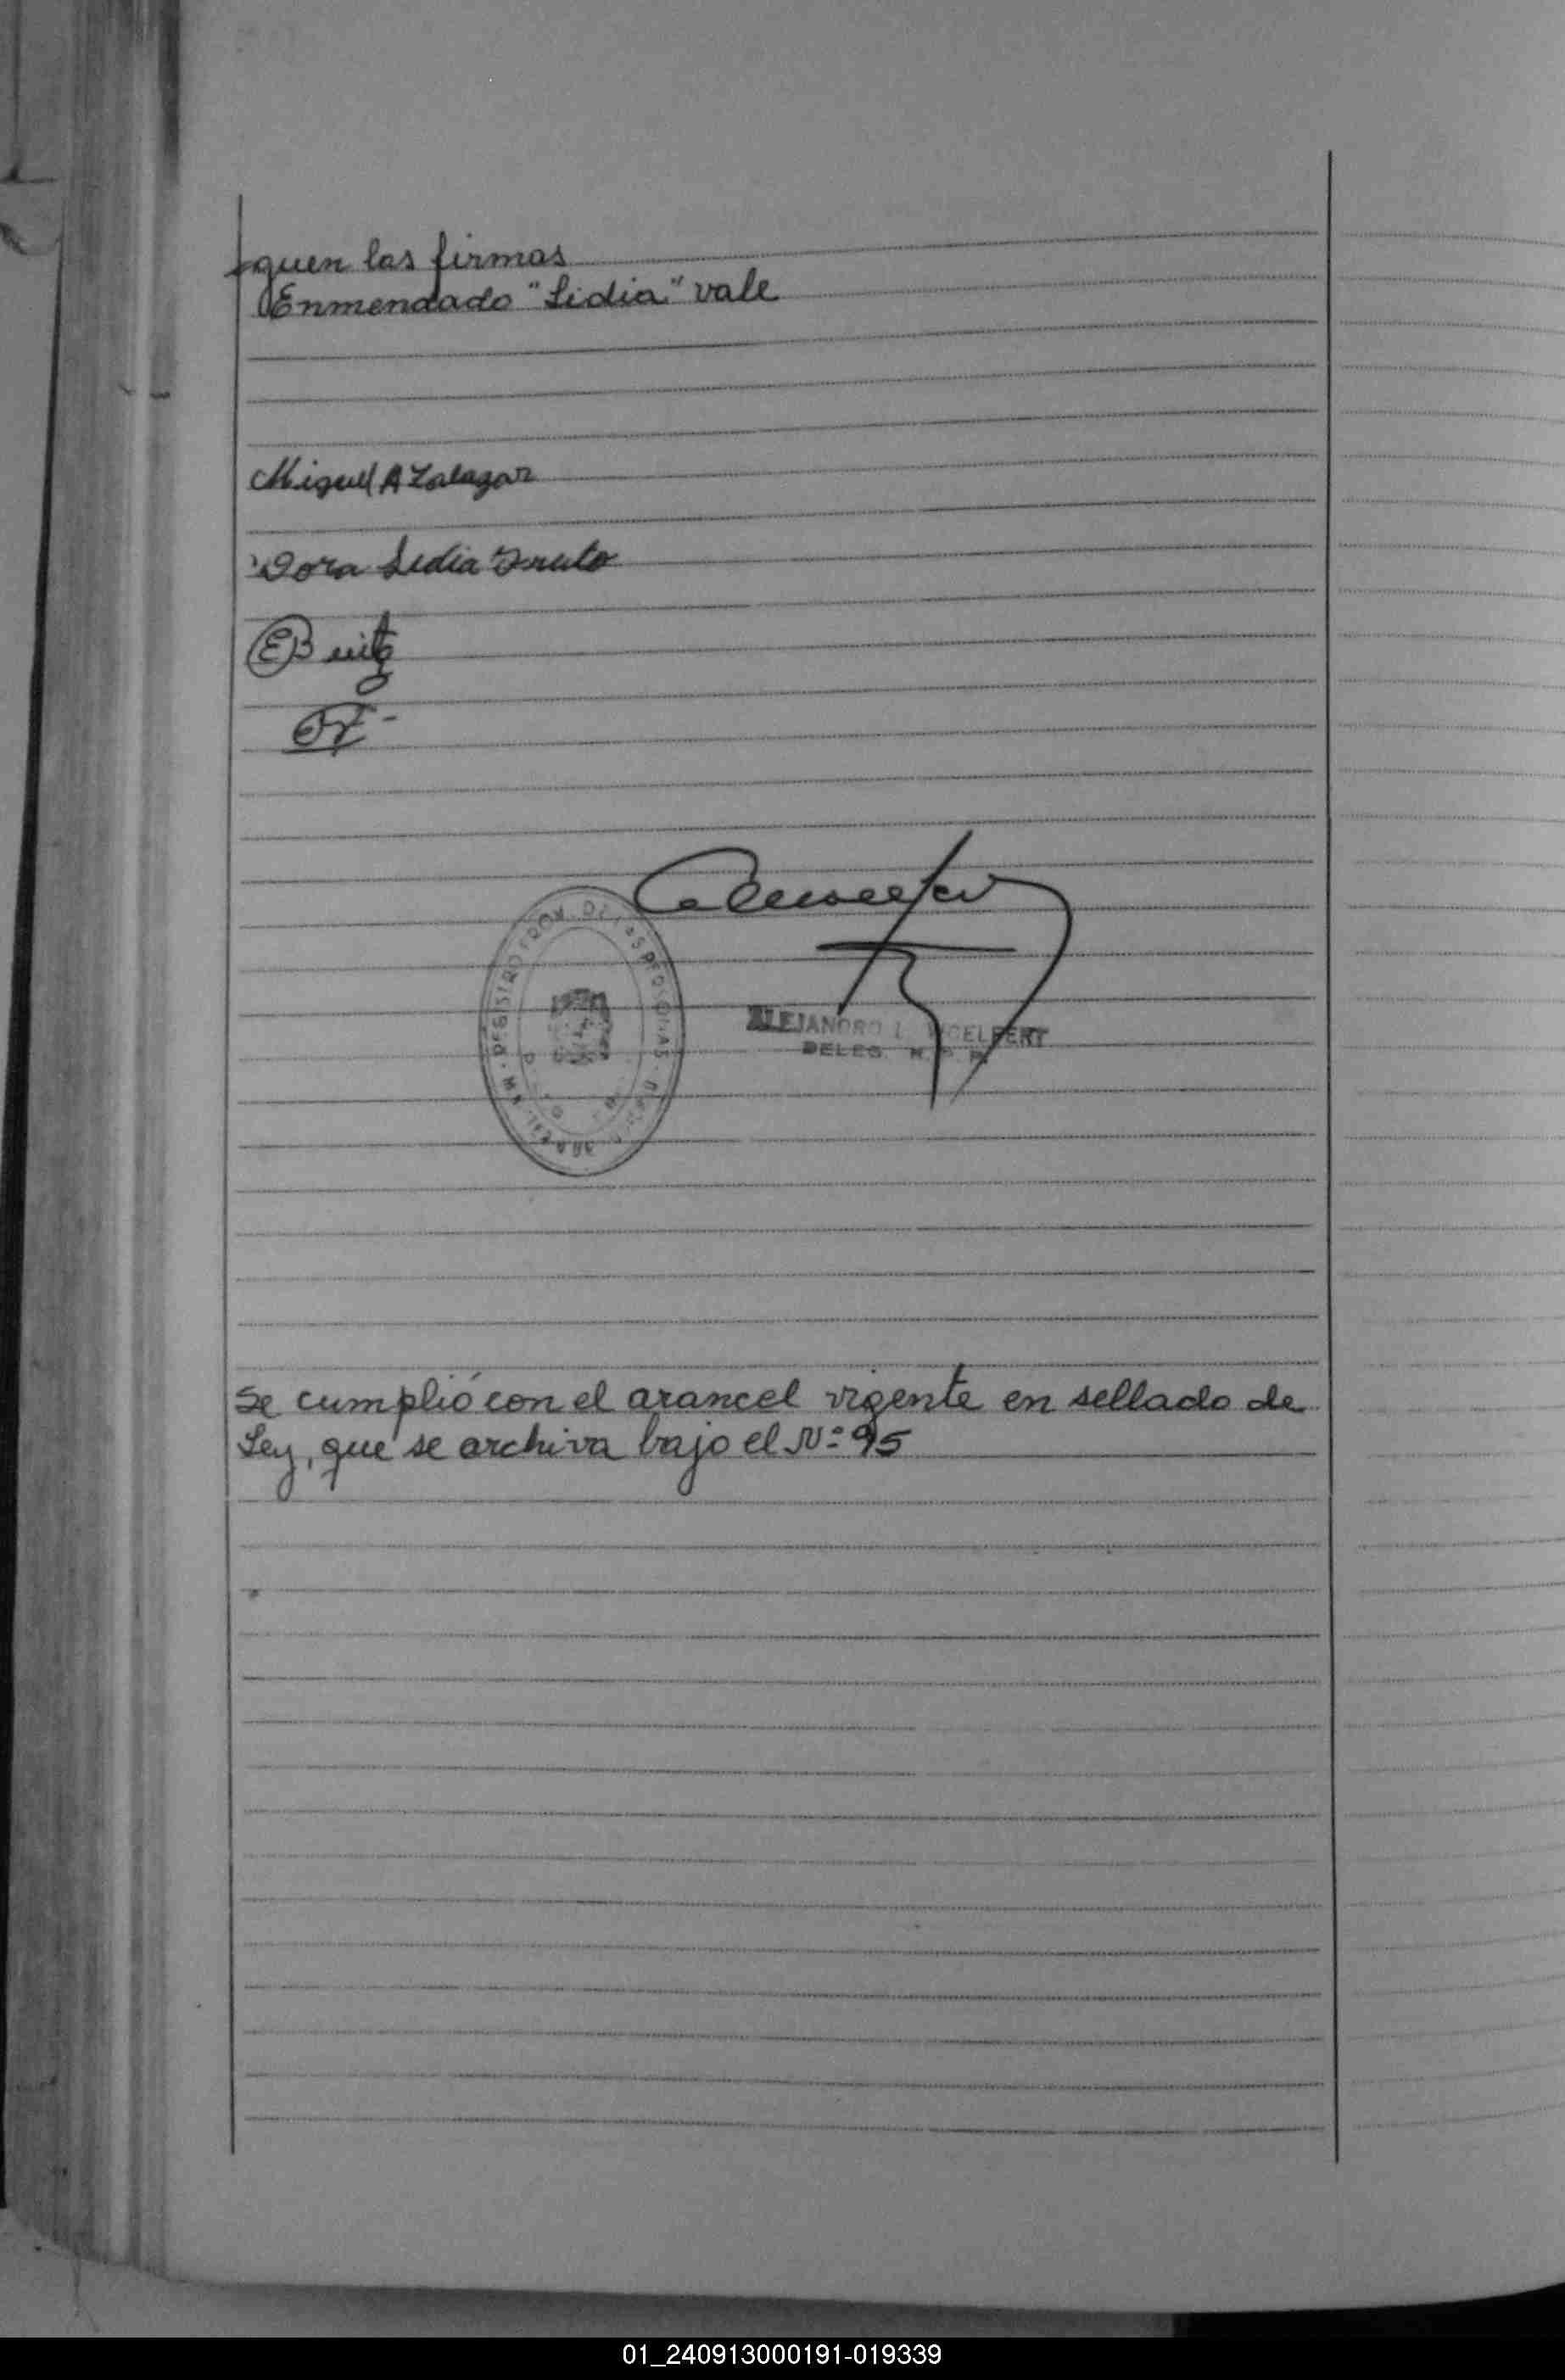 guen las firmas
Enmendado "Lidia" vale
Miguel A Zalazar
Dora Lidia
REGISTRO
ALEJANDRO L
DELEG.
Se cumplió con el arancel vigente en sellado de
Ley, que se archiva bajo el Nº 95
01_240913000191-019339